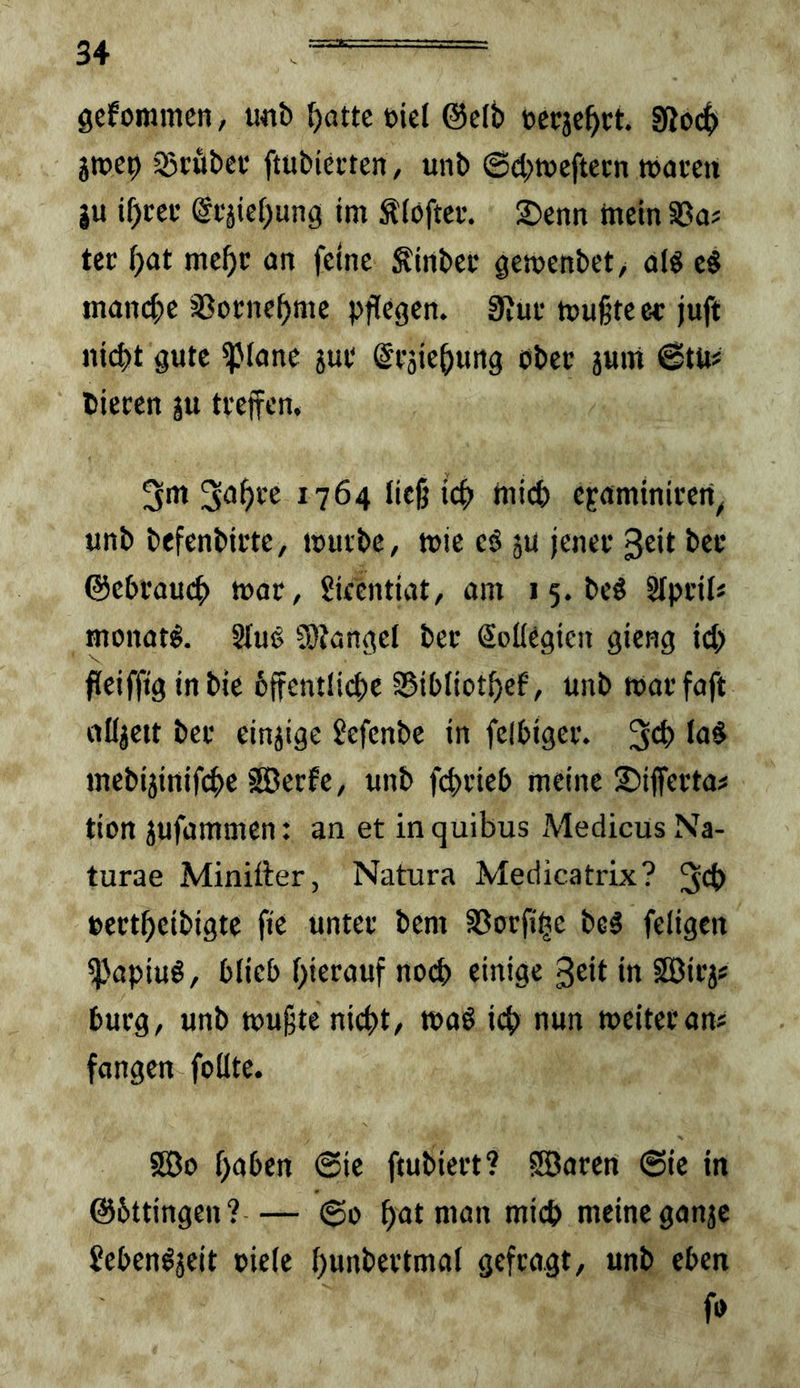 34
gekommen, und hatte viel Geld verzehrt. Noch
zwey Brüder studierten, und Schwestern waren
zu ihrer Erziehung im Kloster. Denn mein Va-
ter hat mehr an seine Kinder gewendet, als es
manche Vornehme pflegen. Nur wußte er just
nicht gute Plane zur Erziehung oder zum Stu-
dieren zu treffen.
Im Jahre 1764 ließ ich mich examiniren,
und defendirte, wurde, wie es zu jener Zeit der
Gebrauch war, Licentiat, am 15. des April-
monats. Aus Mangel der Collegien gieng ich
fleissig in die öffentliche Bibliothek, und war fast
allzeit der einzige Lesende in selbiger. Ich las
medizinische Werke, und schrieb meine Disserta-
tion zusammen: an et in quibus Medicus Na-
turae Minister, Natura Medicatrix? Ich
vertheidigte sie unter dem Vorsitze des seligen
Papius, blieb hierauf noch einige Zeit in Wirz-
burg, und wußte nicht, was ich nun weiter an-
fangen sollte.
Wo haben Sie studiert? Waren Sie in
Göttingen? — So hat man mich meine ganze
Lebenszeit viele hundertmal gefragt, und eben
so